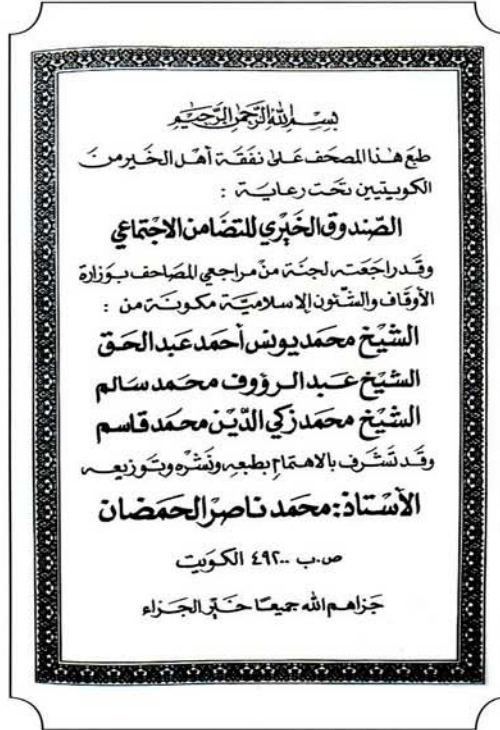 بِسْمِ اللهِ الرَّحْمٰنِ الرَّحِيْمِ
طبع هـٰذا المصحف عَلىٰ نفقَة أهـْل الخَير من
الكويتيين تحَت رعايـة :
الصّندوق الخَيْري للتضَامن الاجْتماعي
وقَد راجَعتـه لجنَـة منْ مراجعي المصَاحف بـوَزارة
الأوقَاف والشّئون الإسلاميَّة مكونَـة من :
الشيْخ محمَد يونس أحمَد عَبدالحَـق
الشيْخ عَـبد الـرؤوف محـمد سَـالم
الشيْخ محمَد زكي الدّيْن محمَد قاسم
وقَد تشَـرف بالاهتمَام بطبعه ونَشْره وتـوزيعـه
الأسْتاذ : محمَد ناصرْ الحَمَضَان
ص.ب ٤٩٢٠٠ الكويت
جَزاهم الله جميعًا خَـيْر الجَـزاء